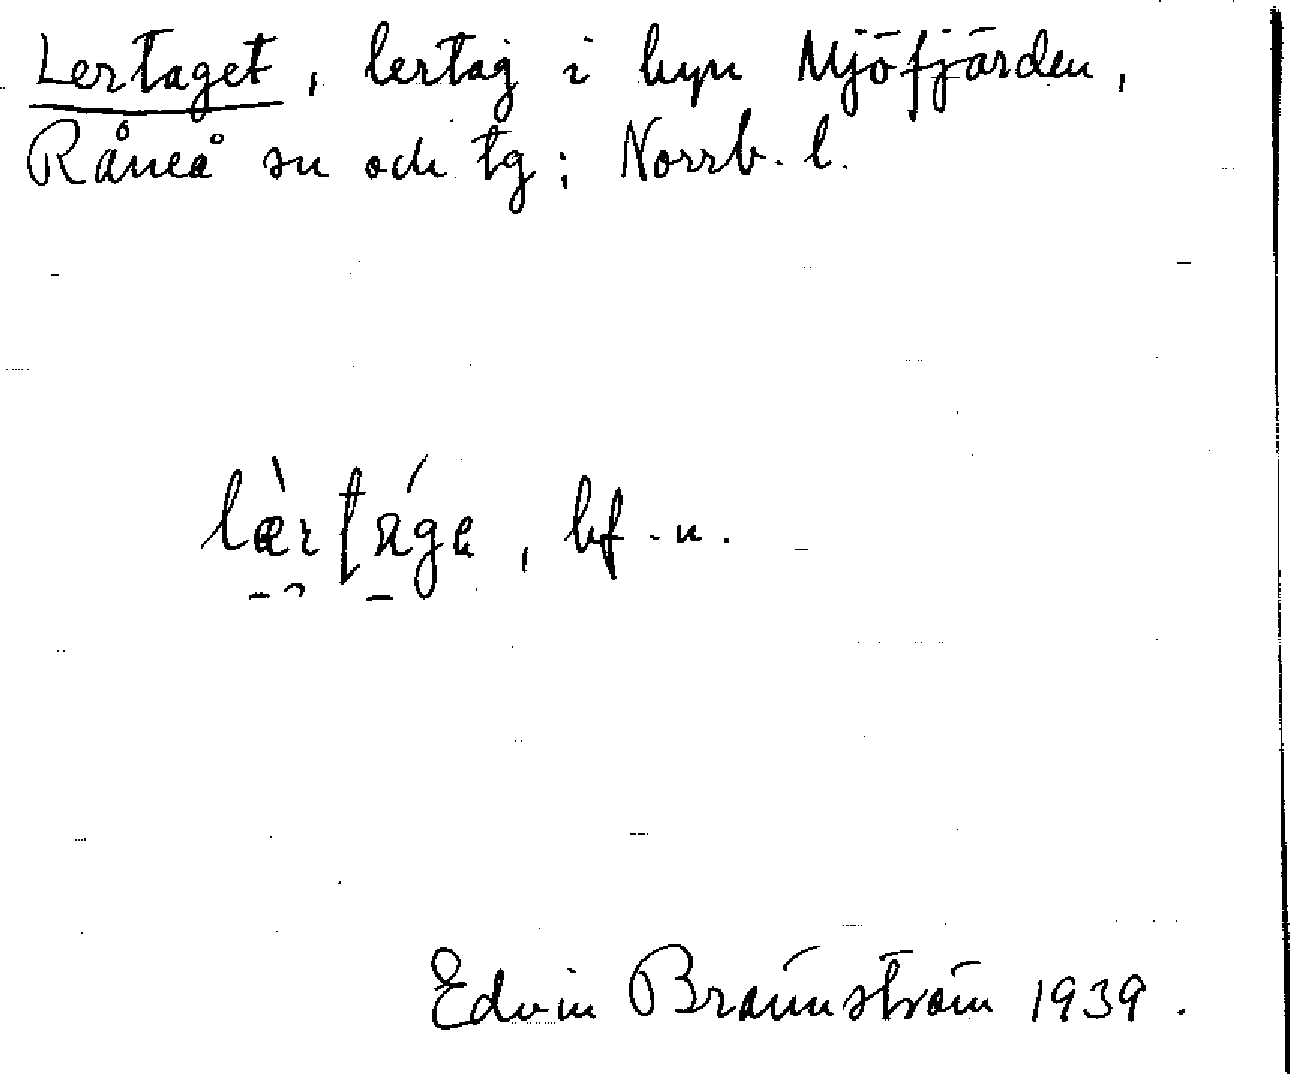 Lertaget, lertag i byn Mjöfjärden,
Råneå sn och tg; Norrb. l.
læ̀rtáge, bf. n.
Edvin Brännström 1939.